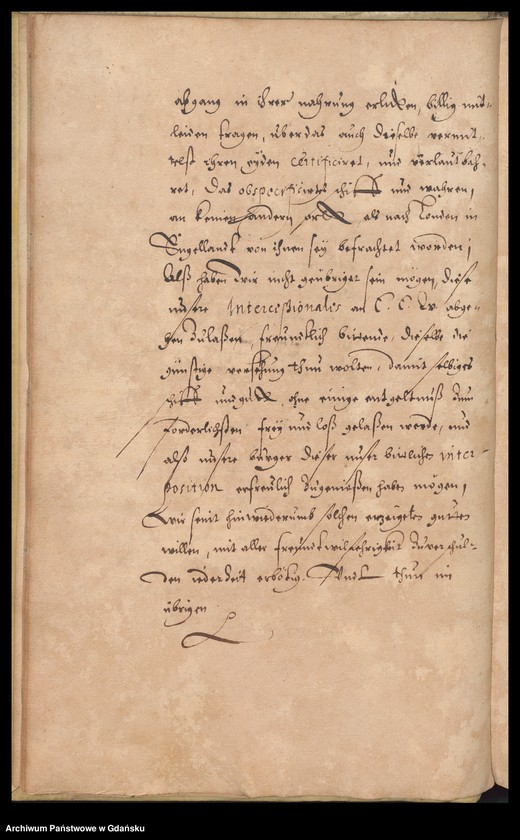 abgang in ihrer nahrung erlitten, billig mit-
leiden tragen, über das auch dieselbe vermit-
telst ihren eyden certificiret, und verlautbah-
ret, das obspecificirtes schiff und wahren,
an keinen andern ort als nach Londen in
Engellandt von ihnen sey befrachtet worden,
Alß haben wir nicht geübriget sein mögen, diese
unsere Intercessionales an E. E. abge-
hen zulaßen, freundtlich bittende, dieselbe die
günstige versehung thun wolten, damit selbiges
schiff und gutt ohne einige entgeltnüß zum
forderlichsten frey und loß gelaßen werde, und
alß unsere bürger dieser unser bittlichen inter-
position erfreulich zugenießen haben mögen,
Wir seint hinwiederumb solchen erzeigeten gutten
willen, mit aller freundtwilfehrigkeit zuverschul-
den iederzeit erbötig. Undt thun im
übrigen
Archiwum Państwowe w Gdańsku